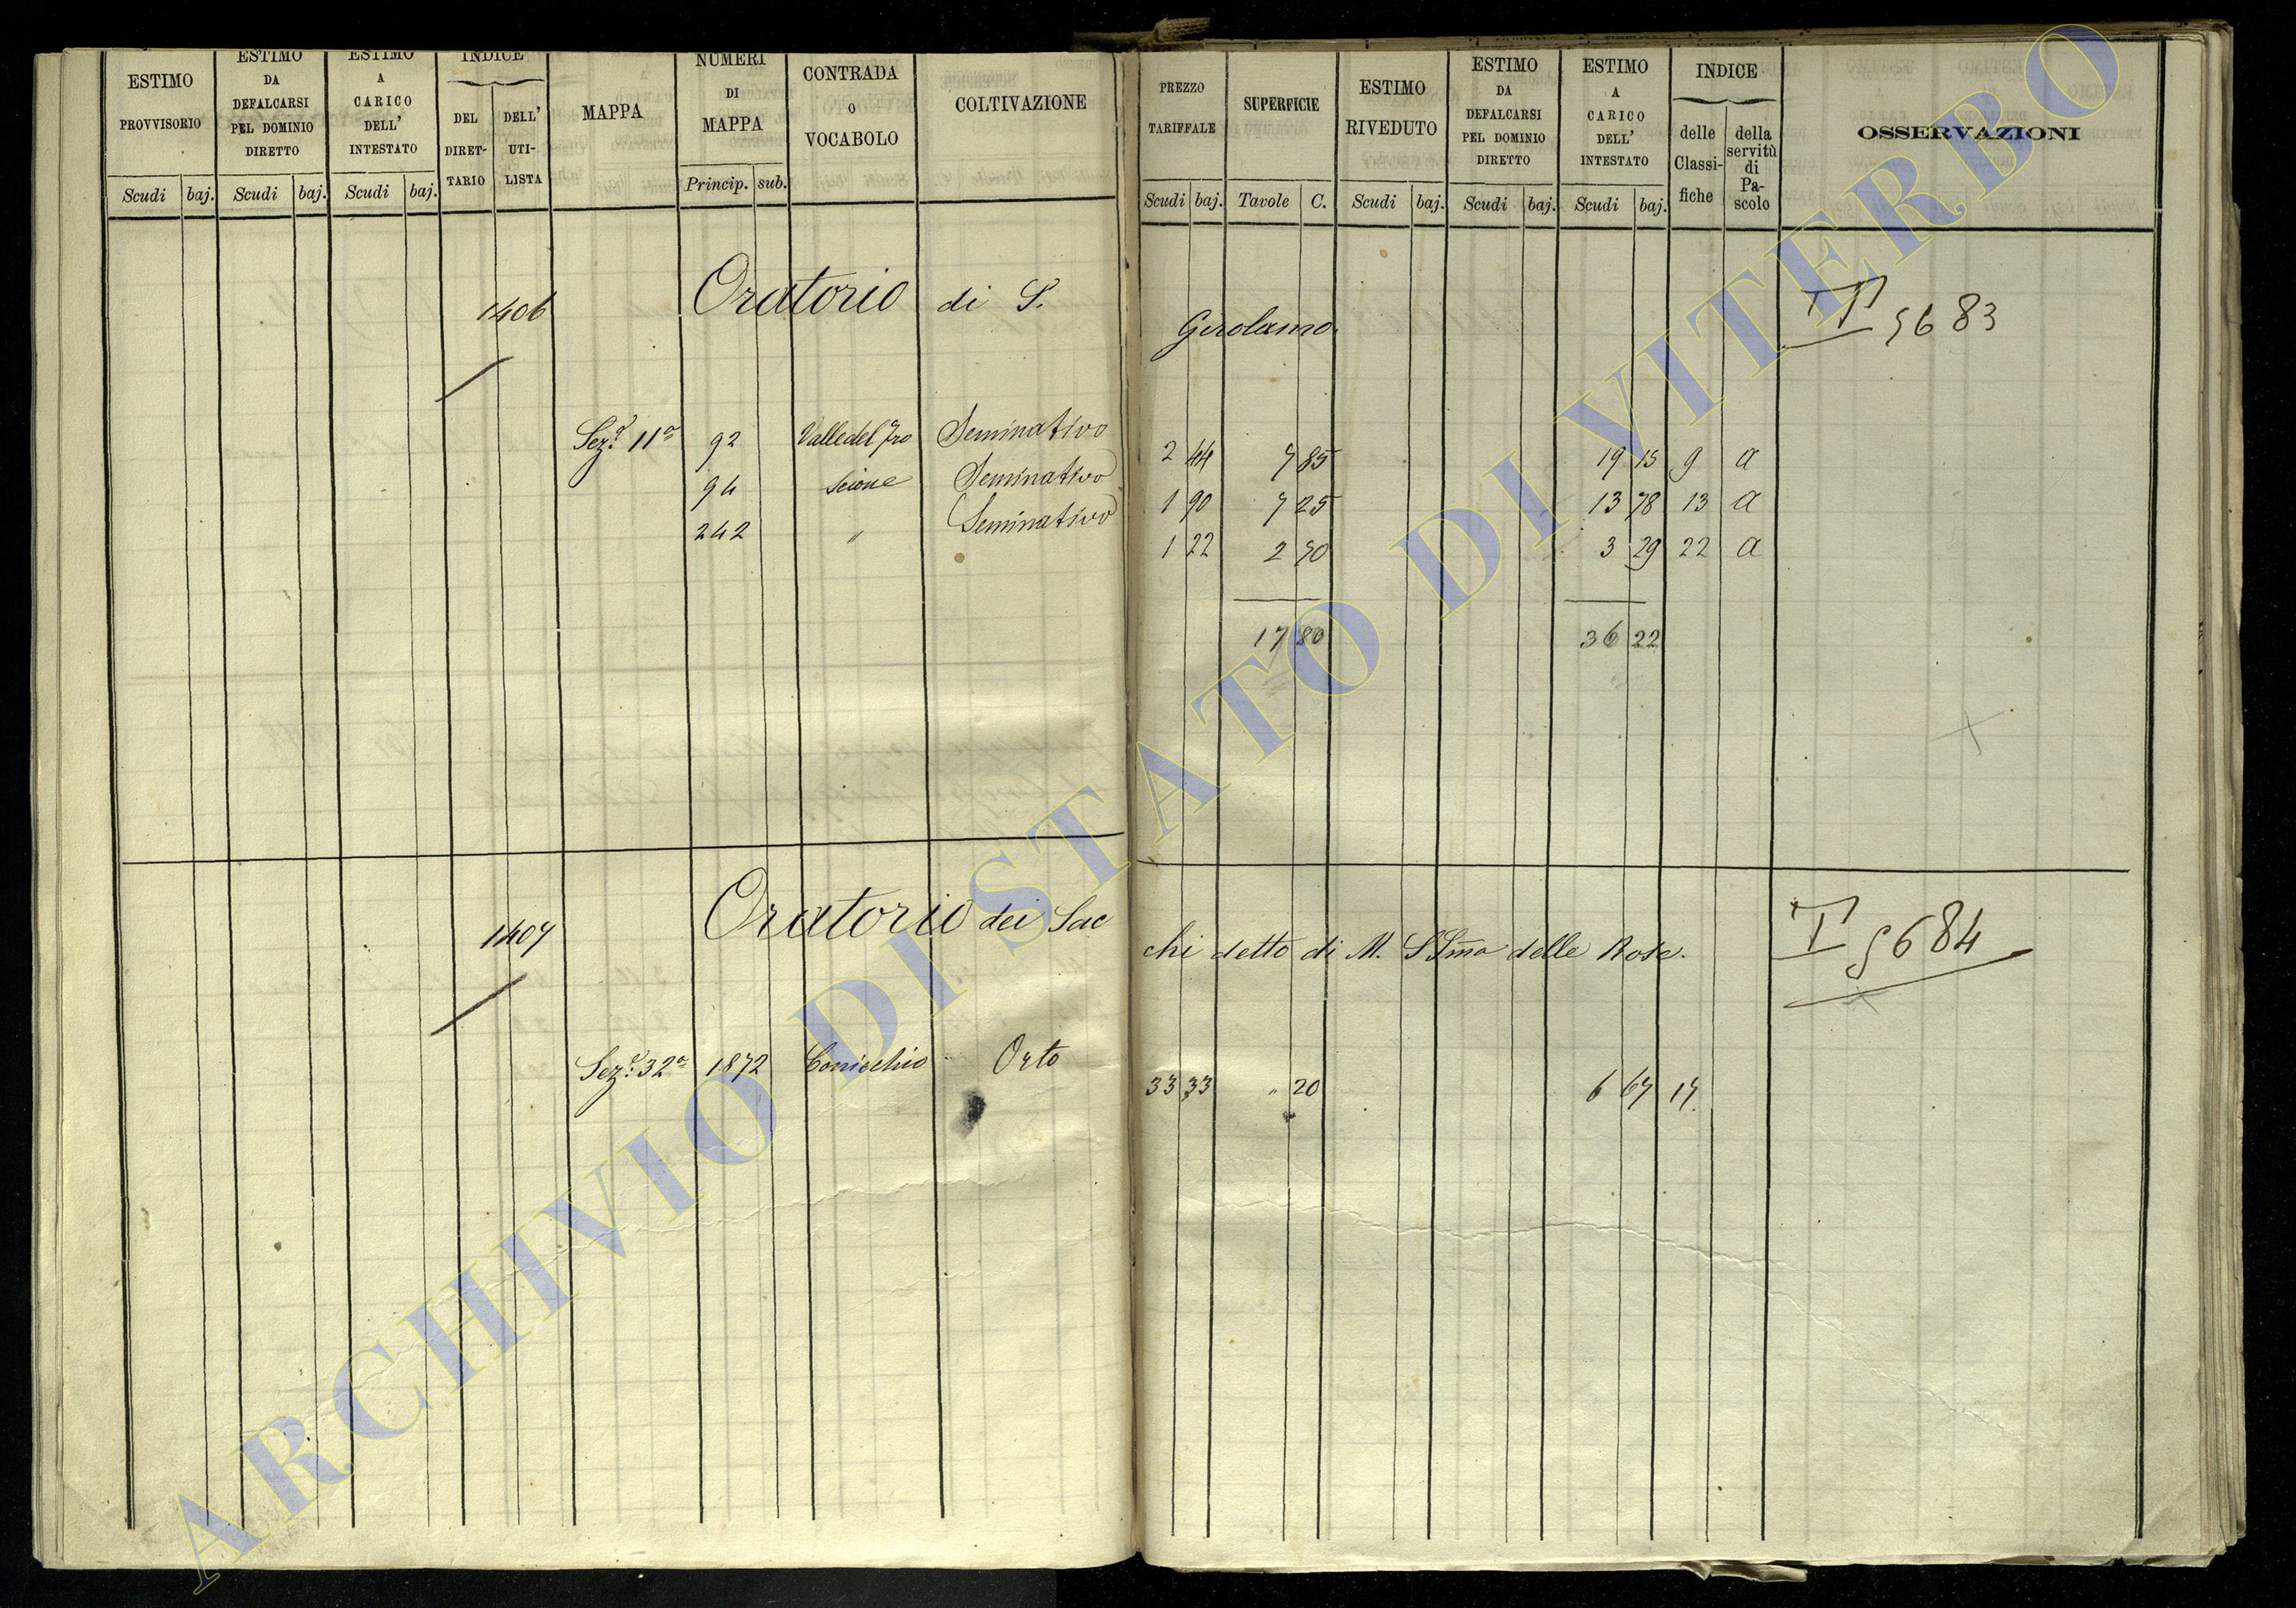 ESTIMO PROVVISORIO
Scudi baj.
ESTIMO DA DEFALCARSI PEL DOMINIO DIRETTO
Scudi baj.
ESTIMO A CARICO DELL' INTESTATO
Scudi baj.
INDICE
DEL DIRET-TARIO
DELL' UTI-LISTA
MAPPA
NUMERI DI MAPPA
Princip. sub.
CONTRADA O VOCABOLO
COLTIVAZIONE
PREZZO TARIFFALE
Scudi baj.
SUPERFICIE
Tavole C.
ESTIMO RIVEDUTO
Scudi baj.
ESTIMO DA DEFALCARSI PEL DOMINIO DIRETTO
Scudi baj.
ESTIMO A CARICO DELL' INTESTATO
Scudi baj.
INDICE
delle Classi-fiche
della servitù di Pa-scolo
OSSERVAZIONI
1406 Oratorio di S. Girolamo. T 5683
Sez.e 11a 92 Valle del Fro Seminativo 2 44 7 85 19 15 9 a
94 scione Seminativo 1 90 7 25 13 78 13 a
242 " Seminativo 1 22 2 70 3 29 22 a
17 80 36 22
1407 Oratorio dei Sac chi detto di M. SSma delle Rose. T 5684
Sez.e 32a 1872 Conicchio Orto 33 33 " 20 6 67 17
ARCHIVIO DI STATO DI VITERBO